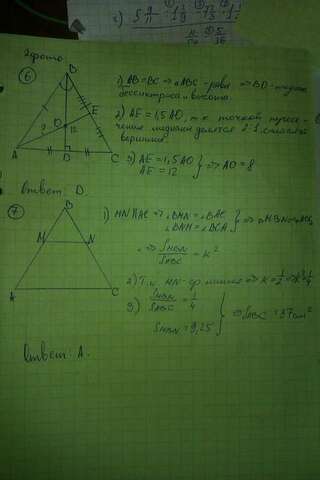 2 фото
6
B
E
O
9
12
A
D
C
1) AB=BC => ΔABC - равн => BD - медиана
биссектриса и высота.
2) AE = 1,5 AO, т.к точкой пересе-
чения медианы делятся 2:1 считая с
вершины.
3) AE = 1,5 AO
AE = 12
=> AO = 8
Ответ: D.
7
B
M
N
A
C
1) MN || AC =>
=> SMBN/SABC = k²
2) Т.к MN - ср. линия => k = 1/2 => k² = 1/4
3) SMBN/SABC = 1/4
SMBN = 9,25
=> SABC = 37 см²
Ответ: A.